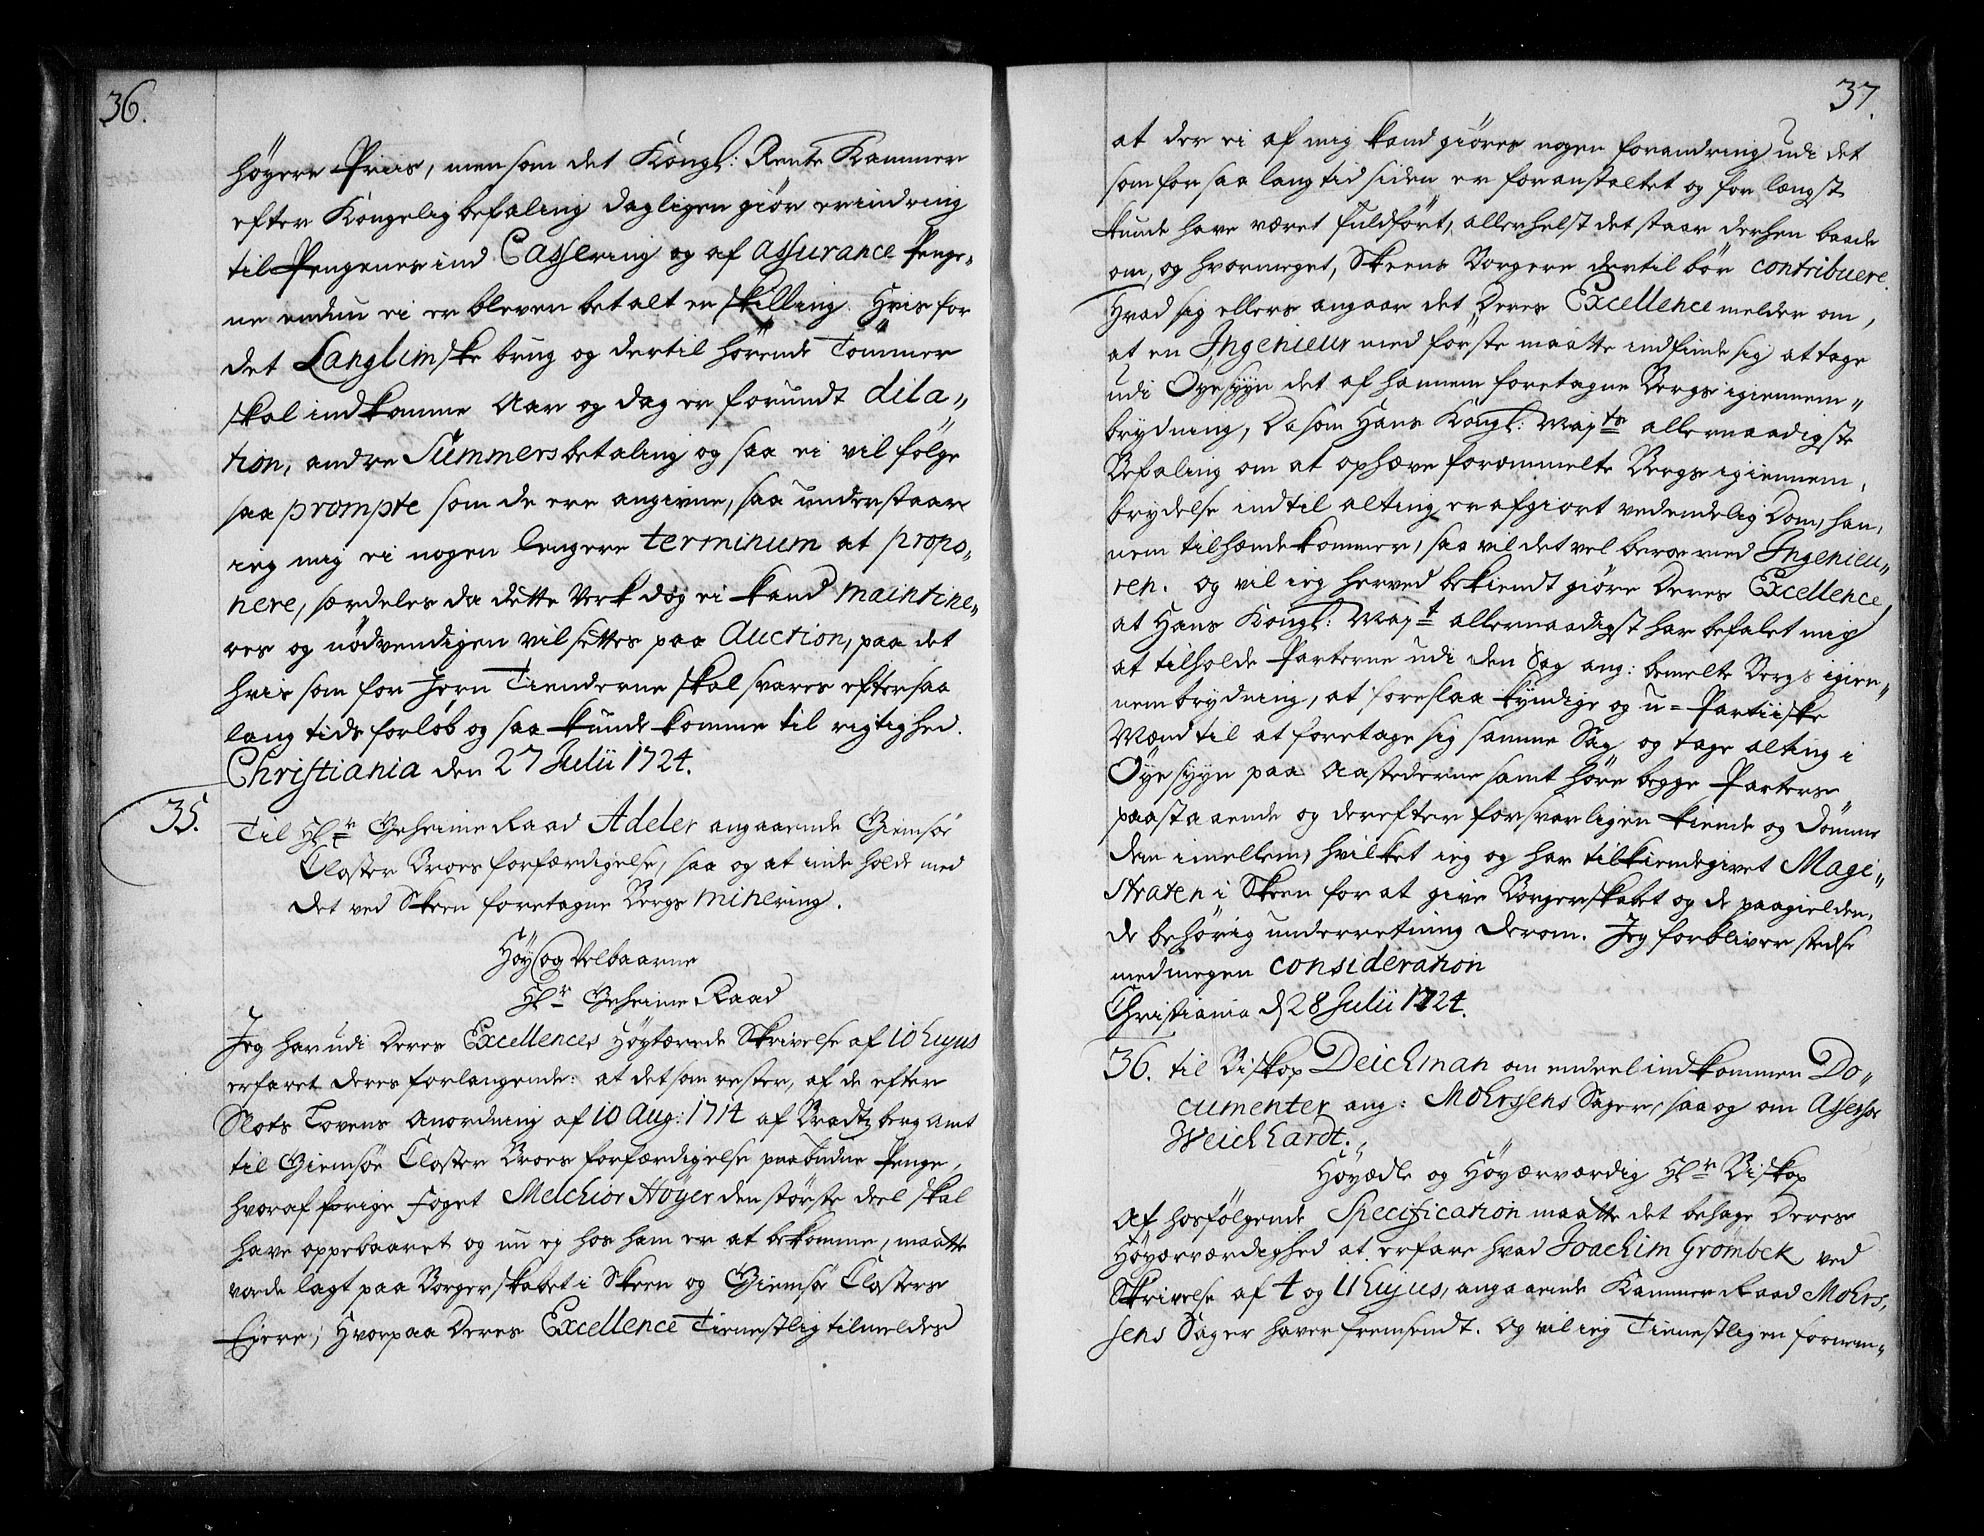 36.
höyere Priis, men som det Kongl: Rente Kammer
efter Kongelig befaling dagligen giør erindring
til Pengenes ind Cassering og af Assurance Penge„
ne endnu ei er bleven betalt en skilling. Hvis for
det Langlimske brug og dertil hørende Tömmer
skal indkomme Aar og dag er forundt dila„
tion, andre Summers betaling og saa ei vil følge
saa prompte som de ere angivne, saa understaar
ieg mig ei nogen lengere terminum at propo„
nere, særdeles da dette Verk dog ei kand maintine„
res og nødvendigen vil settes paa Auction, paa det
hvis som for Jern Tienderne skal svares efter saa
lang tids forløb og saa kunde komme til rigtighed.
Christiania den 27 Julii 1724.
35. Til Hr Geheime Raad Adeler angaaende Giemsöe
Closter Broes forfærdigelse, saa og at inde holde med
det ved Skeen foretagne Bergs minering.
Höy og Velbaarne
Hr Geheime Raad
Jeg har udi Deres Excellences Höytærede Skrivelse af 10 hujus
erfaret deres forlangende: at det som rester, af de efter
Slots Lovens Anordning af 10 Aug: 1714 af Bradtzberg Amt
til Giemsöe Closter Broes forfærdigelse paabudne Penge,
hvoraf forige Foget Melchior Höyer den störste deel skal
have oppebaaret og nu ej hos ham er at bekomme, maatte
vorde lagt paa Borgerskabet i Skeen og Giemsöe Closters
Ejere; Hvorpaa Deres Excellence Tienestlig tilmeldes
37.
at der ei af mig kand giöres nogen forandring udi det
som for saa lang tid siden er foranstaltet og for længst
kunde have været fuldfört, allerhelst det staar derhen baade
om, og hvormeget, Skeens Borgere dertil bör contribuere.
Hvad sig ellers angaar det Deres Excellence melder om,
at en Ingenieur med förste maatte indfinde sig at tage
udi Öyesyyn det af hannem foretagne Bergs igiennem„
brydning, Da som Hans Kongl: Mayts allernaadigste
Befaling om at ophæve forommelte Bergs igiennem„
brydelse indtil alting er afgiort ved endelig Dom, han„
nem tilhænde kommer, saa vil det vel beroe med Ingenieu„
ren. Og vil ieg herved bekiendt giöre Deres Excellence,
at Hans Kongl: Mayt allernaadigst har befalet mig
at tilholde Parterne udi den Sag ang: bemelte Bergs igien„
nembrydning, at foreslaa kyndige og u-Partiiske
Mænd til at foretage sig samme Sag og tage alting i
Öyesyyn paa Aastederne samt höre begge Parters
paastaaende og derefter forsvarligen kiende og dömme
dem imellem, hvilket ieg og har tilkiendegivet Magi„
straten i Skeen for at give Borgerskabet og de paagielden„
de behörig underretning derom. Jeg forbliver stedse
med megen consideration
Christiania d 28 Julii 1724.
36. til Biskop Deichman om endeel indkommen Do„
cumenter ang: Mohrsens Sager, saa og om Assessor
Weichhardt.
Höyædle og Höyærværdig Hr Biskop
Af hosfölgende Specification maatte det behage Deres
Höyærværdighed at erfare hvad Joachim Grömbek ved
Skrivelse af 4 og 11 hujus, angaaende Kammer Raad Mohrs„
sens Sager haver fremsendt. Og vil ieg Tienestligen fornem„